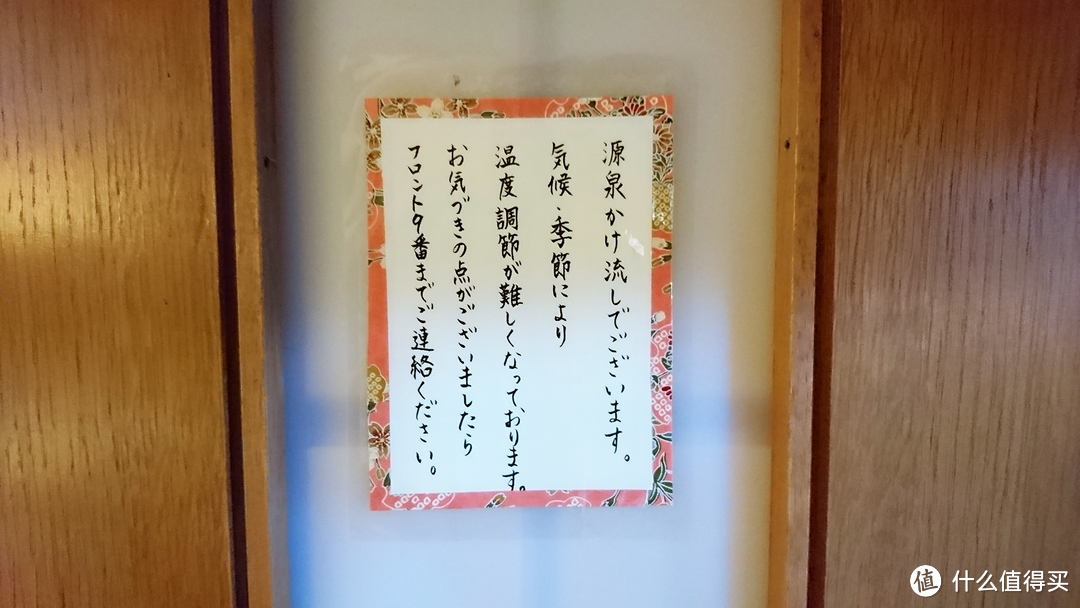 源泉かけ流しでございます。
気候・季節により
温度調節が難しくなっております。
お気づきの点がございましたら
フロント9番までご連絡ください。
值 什么值得买